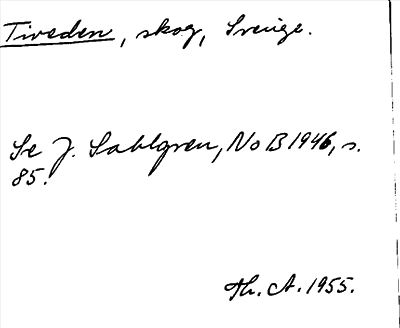 Tiveden, skog, Sverige.
Se J. Sahlgren, NoB 1946, s.
85.
Th. A. 1955.